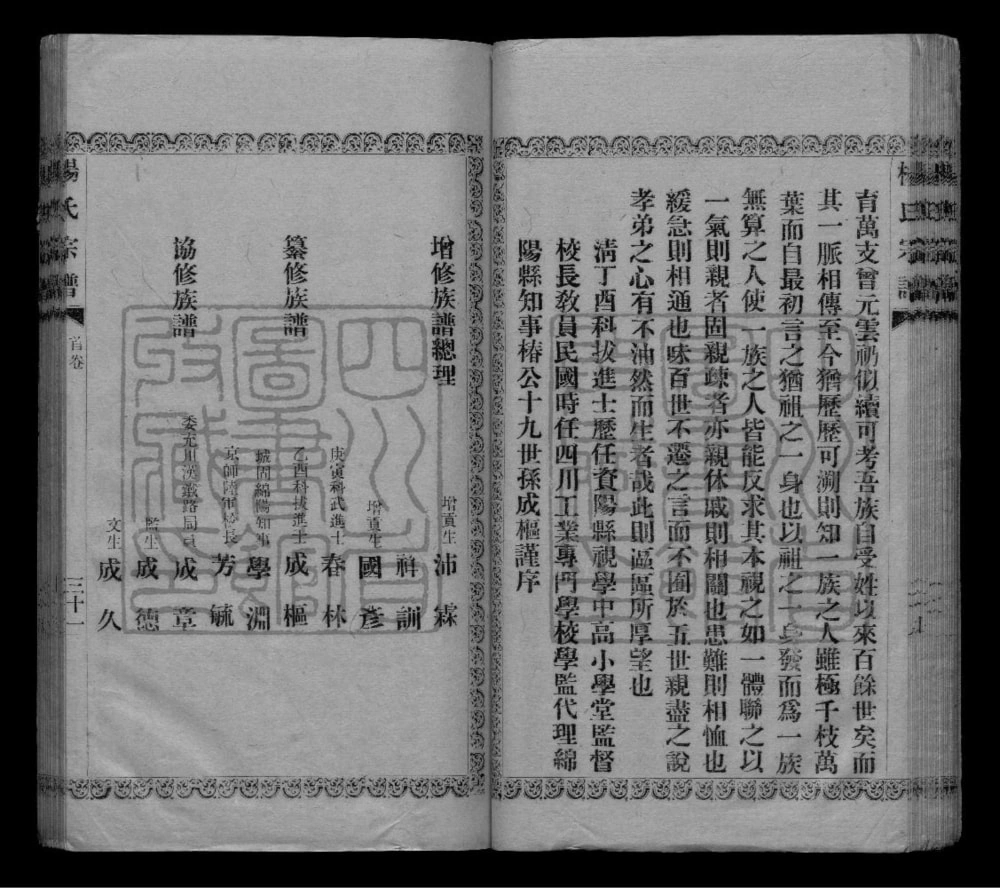 育萬支曾元雲礽似續可考吾族自受姓以來百餘世矣而
其一脈相傳至今猶歷歷可溯則知一族之人雖極千枝萬
葉而自最初言之猶祖之一身也以祖之一身發而爲一族
無算之人使一族之人皆能反求其本視之如一體聯之以
一氣則親者固親疎者亦親休戚則相關也患難則相恤也
緩急則相通也味百世不遷之言而不囿於五世親盡之說
孝弟之心有不油然而生者哉此則區區所厚望也
清丁酉科拔進士歷任資陽縣視學中高小學堂監督
校長敎員民國時任四川工業專門學校學監代理綿
陽縣知事椿公十九世孫成樞謹序
增修族譜總理
增貢生 沛霖
祥訓
增貢生 國彥
庚寅科武進士 春林
纂修族譜
乙酉科拔進士 成樞
城固綿陽知事 學淵
京師陸軍 長 芳毓
協修族譜
委充川漢鐵路局員 成章
監生 成德
文生 成久
楊氏宗譜
首卷
三十一
四川
圖書館
收藏章